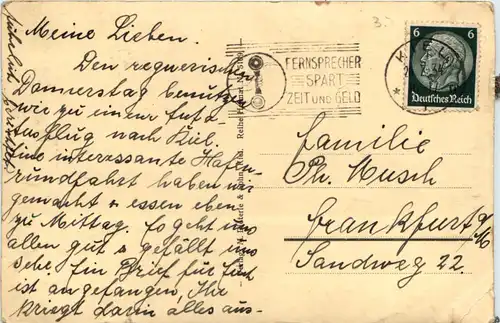 Meine Lieben.
Den regnerischen
Donnerstag benutzen
wir zu einem Auto
ausflug nach Kiel.
Eine interessante Hafen-
rundfahrt haben wir
gemacht & essen eben
zu Mittag. Es geht uns
allen gut & gefällt uns
sehr. Ein Brief für Euch
ist angefangen, Ihr
kriegt darin alles aus-
FERNSPRECHER
SPART
ZEIT UND GELD
6 6
Deutsches Reich
Familie
Ph. Musch
Frankfurt a/M
Sandweg 22.